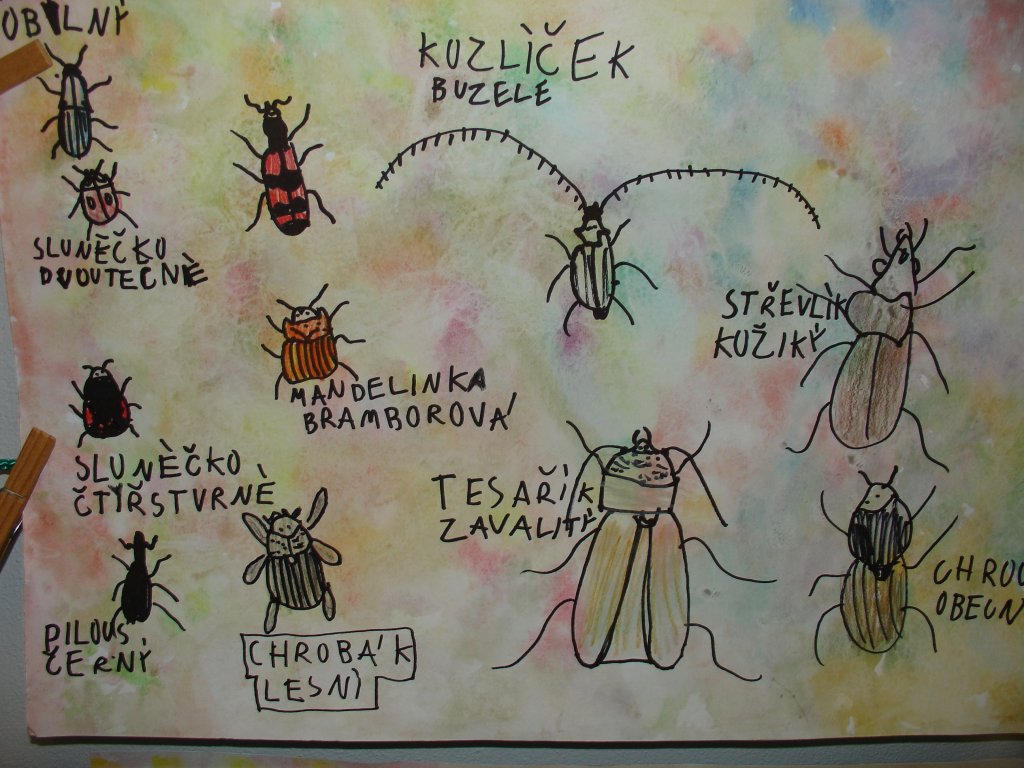 OBILNÝ
KUZLÌČEK
BUZELE
SLUNÈČKO
DVOUTEČNÈ
STŘEVLÌK
KOŽIKÝ
MANDELINKA
BRAMBOROVÁ
SLUNÈČKO
ČTYŘSTVRNÈ
TESAŘÍK
ZAVALITÝ
CHROU
OBECN
PILOUS
ČERNÝ
CHROBÁK
LESNÌ